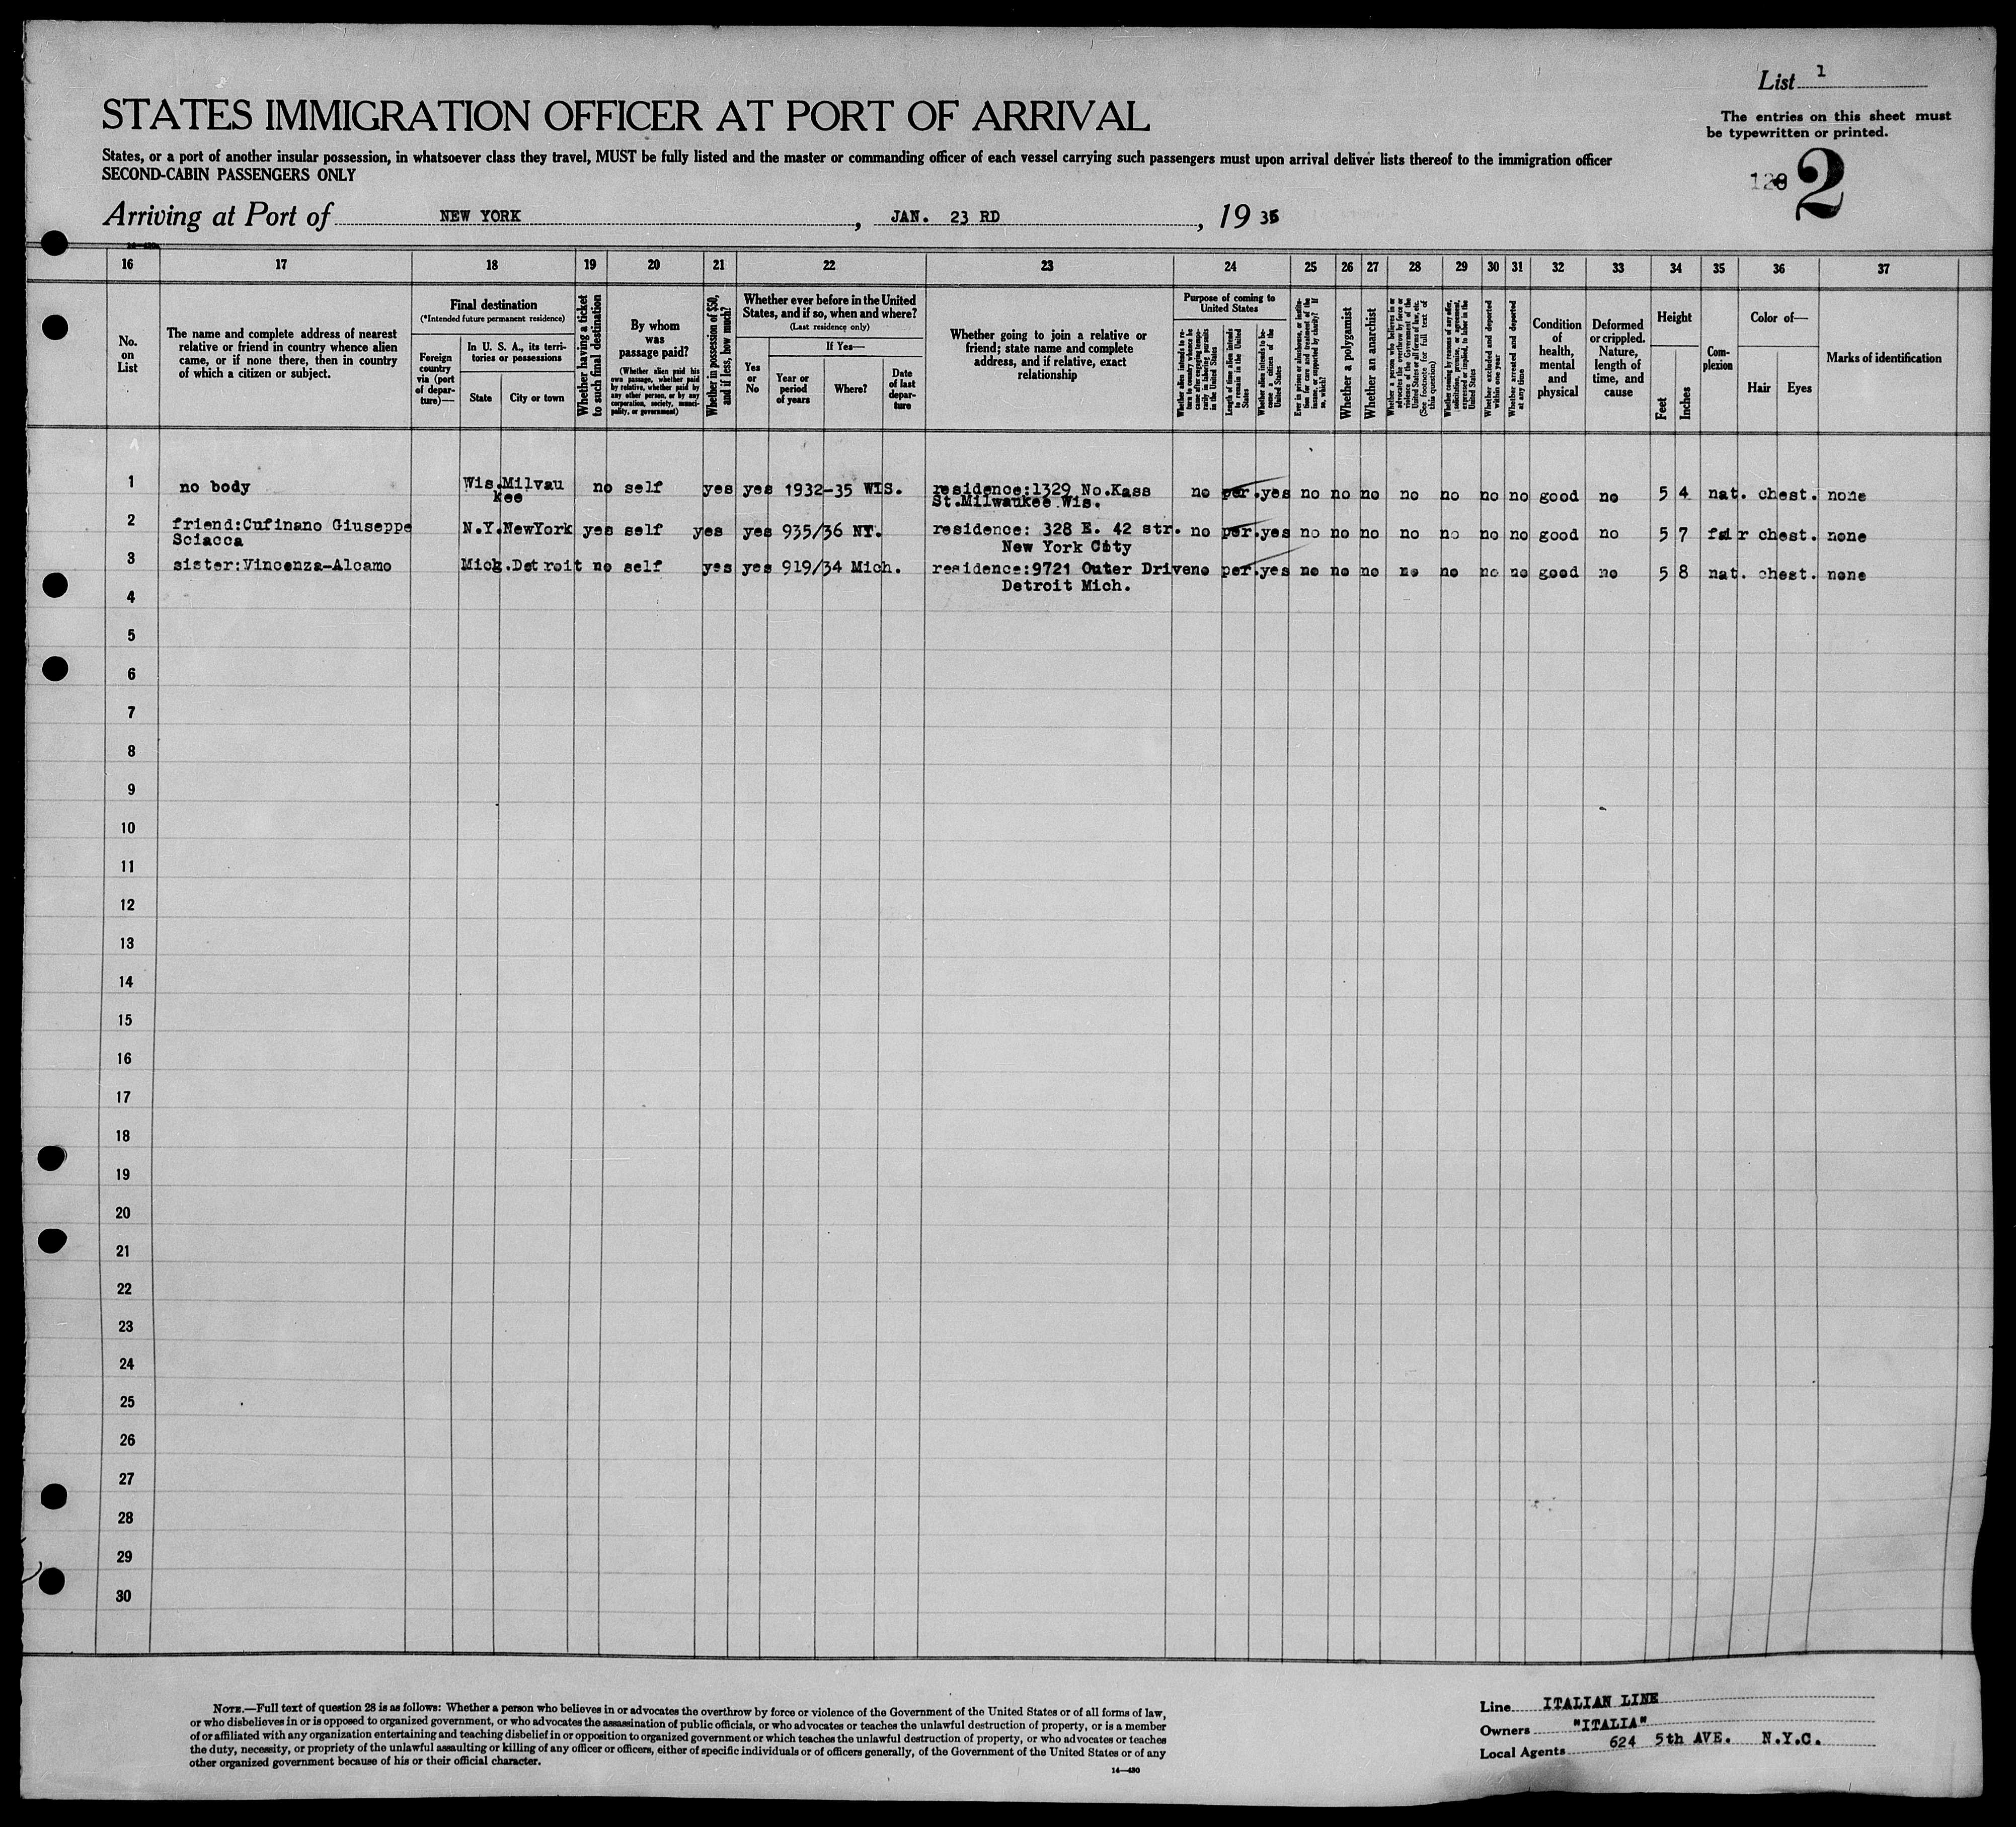 List 1
STATES IMMIGRATION OFFICER AT PORT OF ARRIVAL
The entries on this sheet must
be typewritten or printed.
States, or a port of another insular possession, in whatsoever class they travel, MUST be fully listed and the master or commanding officer of each vessel carrying such passengers must upon arrival deliver lists thereof to the immigration officer
SECOND-CABIN PASSENGERS ONLY
2
Arriving at Port of NEW YORK, JAN. 23 RD, 19
16 17 18 19 20 21 22 23 24 25 26 27 28 29 30 31 32 33 34 35 36 37
No.
on
List
The name and complete address of nearest
relative or friend in country whence alien
came, or if none there, then in country
of which a citizen or subject.
Final destination
(*Intended future permanent residence)
Foreign
country
via (port
of depar-
ture)—
In U. S. A., its terri-
tories or possessions
State
City or town
Whether having a ticket
to such final destination
By whom
was
passage paid?
(Whether alien paid his
own passage, whether paid
by relative, whether paid by
any other person, or by any
corporation, society, munici-
pality, or government)
Whether in possession of $50,
and if less, how much?
Whether ever before in the United
States, and if so, when and where?
(Last residence only)
Yes
or
No
If Yes—
Year or
period
of years
Where?
Date
of last
depar-
ture
Whether going to join a relative or
friend; state name and complete
address, and if relative, exact
relationship
Purpose of coming to
United States
Whether alien intends to re-
turn to country whence he
came after engaging tempo-
rarily in laboring pursuits
in the United States
Length of time alien intends
to remain in the United
States
Whether alien intends to be-
come a citizen of the
United States
Ever in prison or almshouse, or institu-
tion for care and treatment of the
insane, or supported by charity? If
so, which?
Whether a polygamist
Whether an anarchist
Whether a person who believes in or
advocates the overthrow by force or
violence of the Government of the
United States or all forms of law, etc.
(See footnote for full text of
this question)
Whether coming by reasons of any offer,
solicitation, promise, or agreement,
expressed or implied, to labor in the
United States
Whether excluded and deported
within one year
Whether arrested and deported
at any time
Condition
of
health,
mental
and
physical
Deformed
or crippled.
Nature,
length of
time, and
cause
Height
Feet
Inches
Com-
plexion
Color of—
Hair
Eyes
Marks of identification
1 no body Wis. Milvau no self yes yes 1932-35 WIS. residence:1329 No.Kass no per. yes no no no no no no no good no 5 4 nat. chest. none
kee St.Milwaukee Wis.
2 friend:Cufinano Giuseppe N.Y. NewYork yes self yes yes 935/36 NY. residence: 328 E. 42 str. no per. yes no no no no no no no good no 5 7 fair chest. none
Sciacca New York City
3 sister:Vincenza-Alcamo Mich. Detroit no self yes yes 919/34 Mich. residence:9721 Outer Drive no per. yes no no no no no no no good no 5 8 nat. chest. none
Detroit Mich.
4
5
6
7
8
9
10
11
12
13
14
15
16
17
18
19
20
21
22
23
24
25
26
27
28
29
30
NOTE.—Full text of question 28 is as follows: Whether a person who believes in or advocates the overthrow by force or violence of the Government of the United States or of all forms of law,
or who disbelieves in or is opposed to organized government, or who advocates the assassination of public officials, or who advocates or teaches the unlawful destruction of property, or is a member
of or affiliated with any organization entertaining and teaching disbelief in or opposition to organized government or which teaches the unlawful destruction of property, or who advocates or teaches
the duty, necessity, or propriety of the unlawful assaulting or killing of any officer or officers, either of specific individuals or of officers generally, of the Government of the United States or of any
other organized government because of his or their official character.
14—430
Line ITALIAN LINE
Owners "ITALIA"
Local Agents 624 5th AVE. N.Y.C.